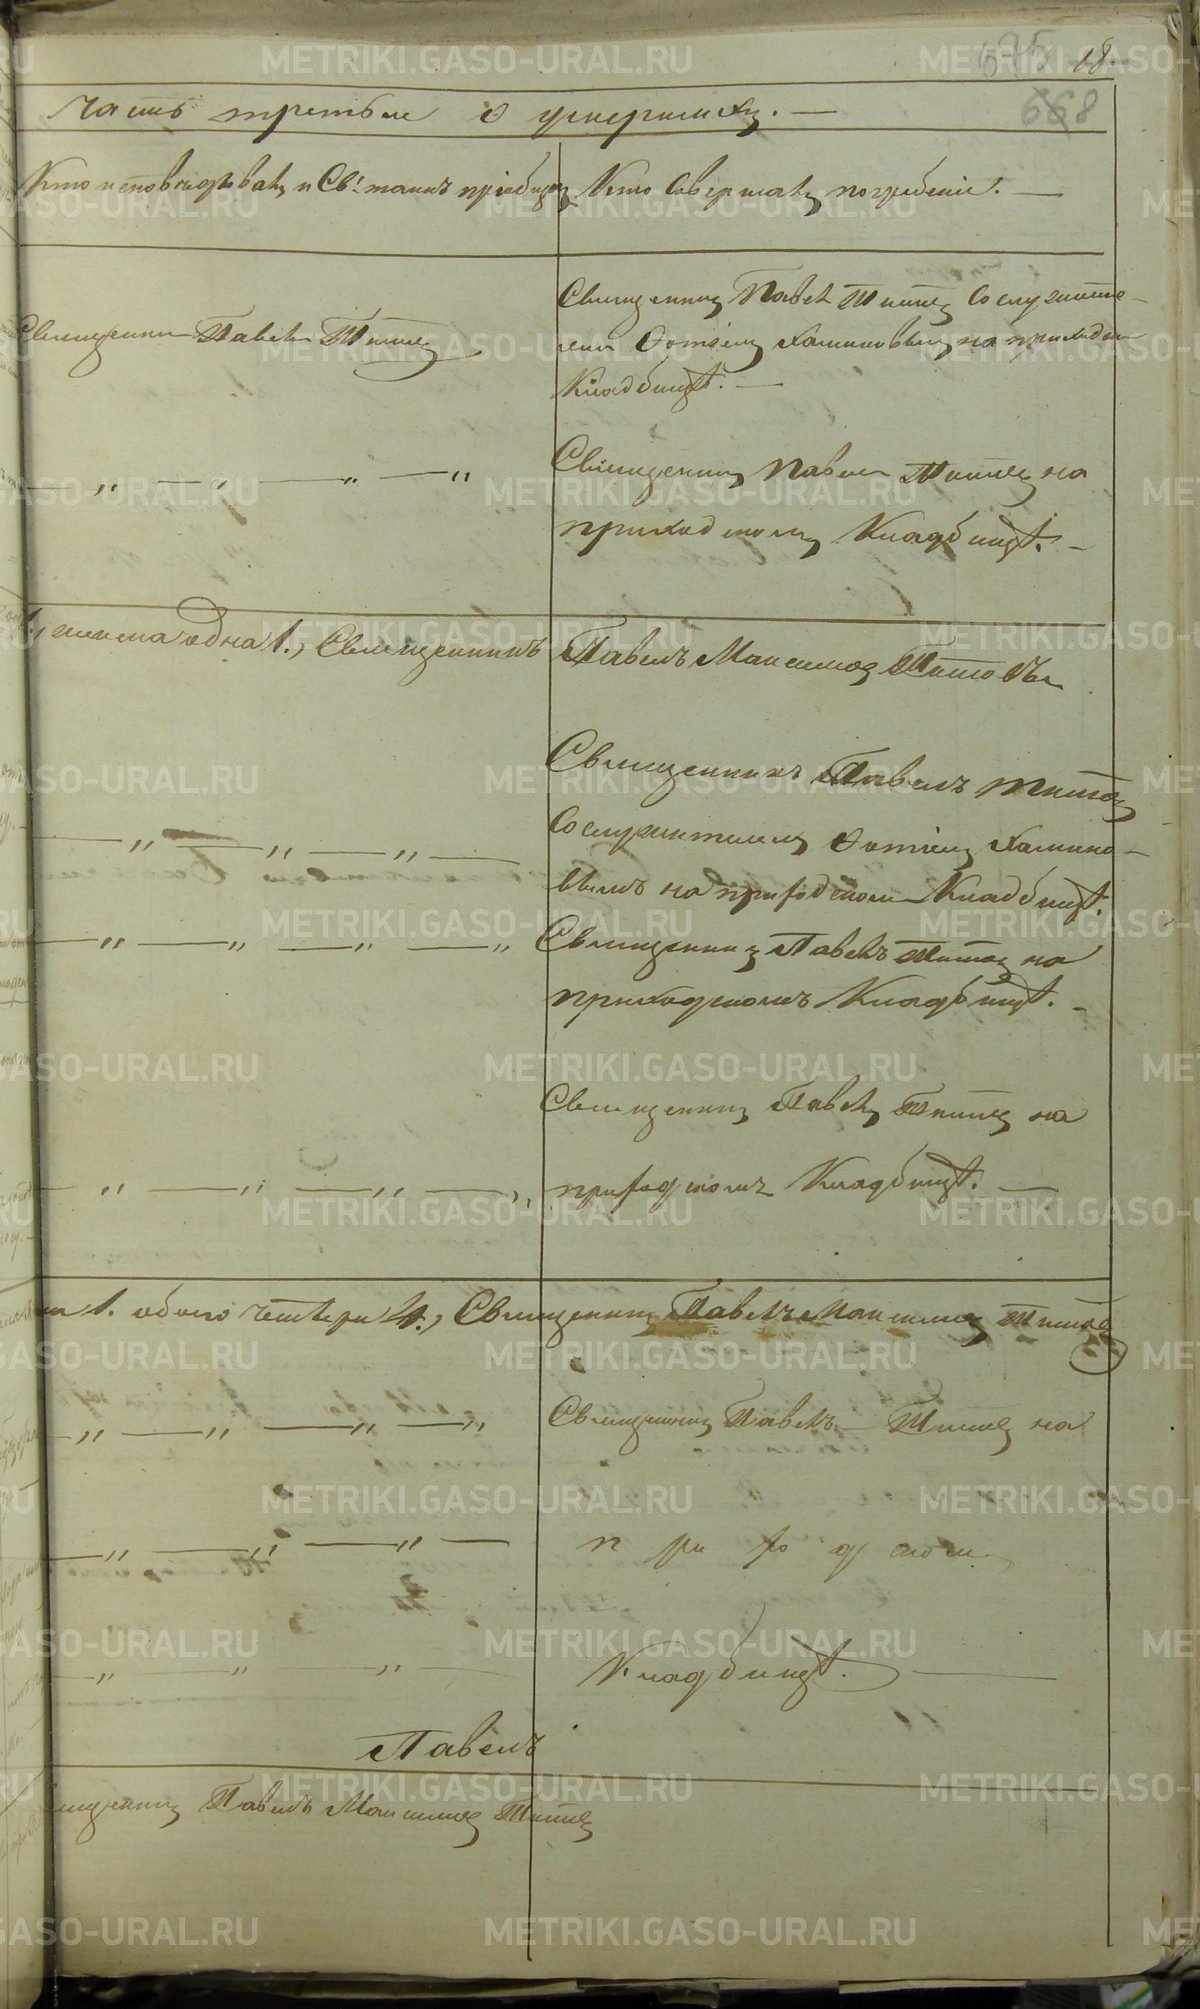 675 18.
668
Часть третья о умершихъ. —
Кто исповѣдовалъ и Св: таинъ пріобщалъ
Кто совершалъ погребеніе. —
Священникъ Павелъ Титовъ
Священникъ Павелъ Титовъ со служите-
лемъ на приходскомъ
Кладбищѣ. —
— „ — „ — „ — „
Священникъ Павелъ Титовъ на
приходскомъ Кладбищѣ. —
одна 1., Священникъ Павелъ Максимовъ Титовъ
— „ — „ — „ —
Священникъ Павелъ Титовъ
со служителемъ
на приходскомъ Кладбищѣ.
— „ — „ — „ — „
Священникъ Павелъ Титовъ на
приходскомъ Кладбищѣ. —
Священникъ Павелъ Титовъ на
— „ — „ — „ — „
приходскомъ Кладбищѣ. —
1. обоего четверо 4., Священникъ Павелъ Максимовъ Титовъ
— „ — „ — „ — „
Священникъ Павелъ Титовъ на
— „ — „ — „ —
приходскомъ
— „ — „ — „ —
Кладбищѣ. —
Павелъ
Павелъ Максимовъ Титовъ
METRIKI.GASO-URAL.RU